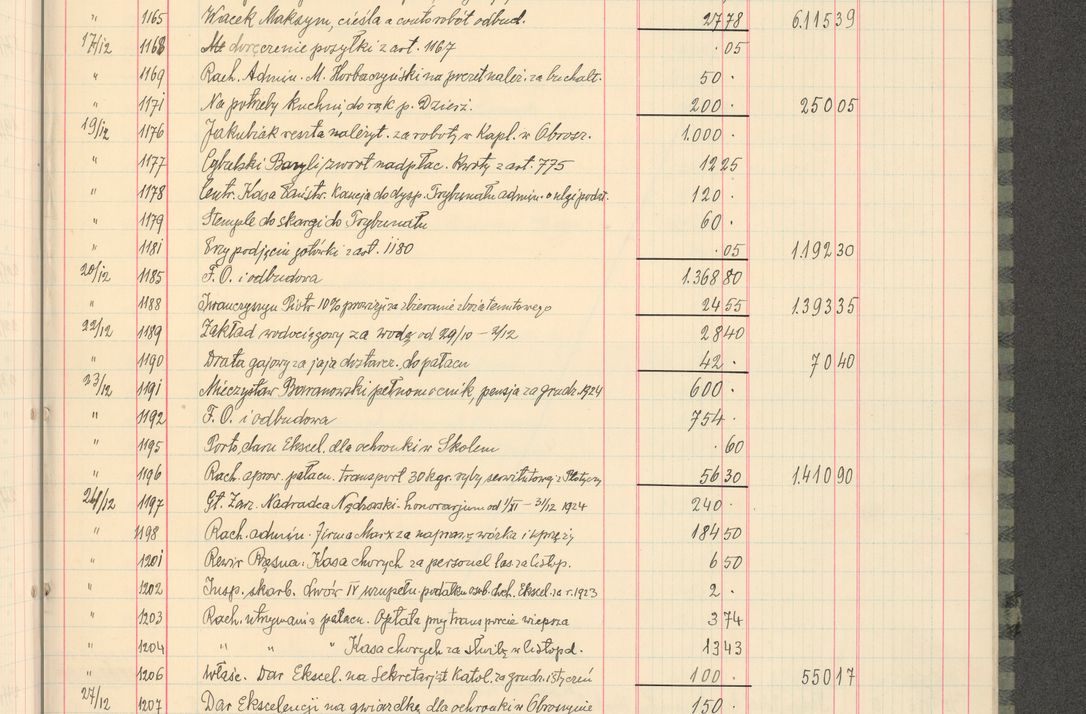 " 1165 Wacek Maksym, cieśla a conto robót odbud. 27 78 6.115 39
17/12 1168 Za doręczenie posyłki z art. 1167 · 05
" 1169 Rach. Admin. M. Horbaczyński na poczet należ. za buchalt. 50 ·
" 1171 Na potrzeby kuchni, do rąk p. Dzierż. 200 · 250 05
19/12 1176 Jakubiak reszta należyt. za roboty w Kapl. w Obrosz. 1.000 ·
" 1177 Cybulski Bazyli, zwrot nadpłac. kwoty z art. 775 12 25
" 1178 Centr. Kasa Państw. Kaucja do dysp. Trybunału admin. o ulgi podat. 120 ·
" 1179 Stemple do skargi do Trybunału 60 ·
" 1181 Przy podjęciu gotówki z art. 1180 · 05 1.192 30
20/12 1185 F. O. i odbudowa 1.368 80
" 1188 Iwanczyszyn Piotr 10% prowizji za zbieranie zboża 24 55 1.393 35
22/12 1189 Zakład wodociągowy za wodę od 29/10 – 2/12 28 40
" 1190 Drata gajowy za jaja dostarcz. do pałacu 42 · 70 40
23/12 1191 Mieczysław Baranowski pełnomocnik, pensja za grudz. 1924 600 ·
" 1192 F. O. i odbudowa 754 ·
" 1195 Porto, daru Ekscel. dla ochronki w Skolem · 60
" 1196 Rach. aprow. pałacu. transport 30 kgr. ryby serwitutowej z 56 30 1.410 90
24/12 1197 Gł. Zarz. Nadradca honorarjum od 1/XI – 31/12 1924 240 ·
" 1198 Rach. admin. Firma Marx za napraw. wózka i uprzęży 184 50
" 1201 Rewir Rzęsna. Kasa chorych za personal las. za listop. 6 50
" 1202 Insp. skarb. Lwów IV uzupełn. podatku osob. doch. Ekscel. za r. 1923 2 ·
" 1203 Rach. utrzymania pałacu. Opłata przy transporcie wieprza 3 74
" 1204 " " " Kasa chorych za służbę w listopd. 13 43
" 1206 Właśc. Dar Ekscel. na Sekretarjat Katol. za grudz. i styczeń 100 · 550 17
27/12 1207 Dar Ekscelencji na gwiazdkę dla ochronki w Obroszynie 150 ·